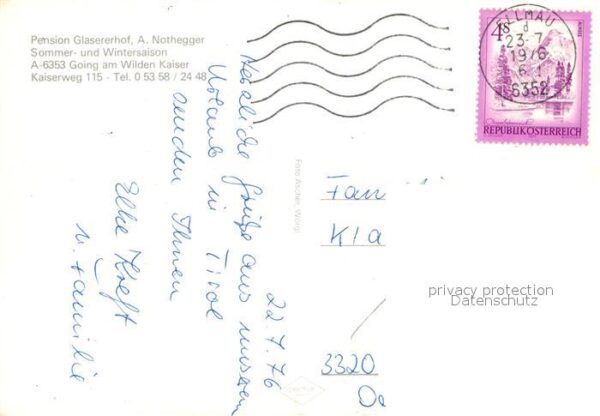 Pension Glasererhof, A. Nothegger
Sommer- und Wintersaison
A-6353 Going am Wilden Kaiser
Kaiserweg 115 - Tel. 0 53 58 / 24 48
ELLMAU
23-7
1976
6352
4S
REPUBLIK ÖSTERREICH
22.7.76
Herzliche Grüße aus unserem
Urlaub in Tirol
senden Ihnen
Elke Kreft
u. Familie
Foto Ascher, Wörgl
Fam
Kla
3320
privacy protection
Datenschutz